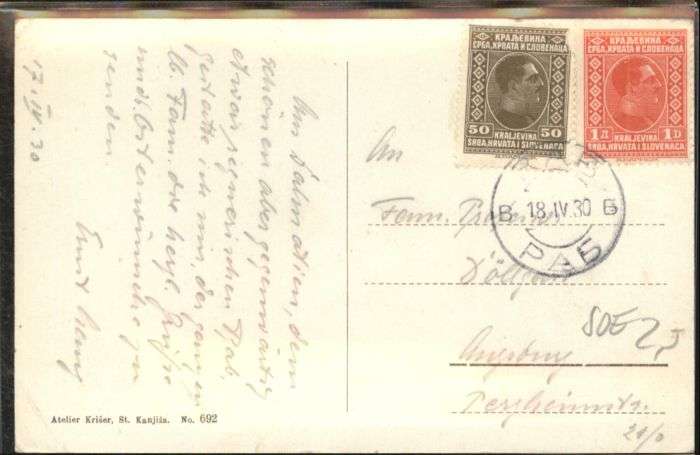 17.IV.30
Aus Dalmatien, dem
schönen aber gegenwärtig
etwas regnerischen Rab.
gestatte ich mir, der ganzen
lb. Fam. die herzl. Grüsse
und Osterwünsche zu
senden
Ernst
КРАЉЕВИНА
СРБА, ХРВАТА И СЛОВЕНАЦА
50 50
KRALJEVINA
SRBA, HRVATA I SLOVENACA
КРАЉЕВИНА
СРБА, ХРВАТА И СЛОВЕНАЦА
1Д 1D
KRALJEVINA
SRBA, HRVATA I SLOVENACA
RAB
B 18.IV.30 B
РАБ
An
Fam.
Augsburg
SOE 2,5
Atelier Krišer, St. Kanjiža. No. 692